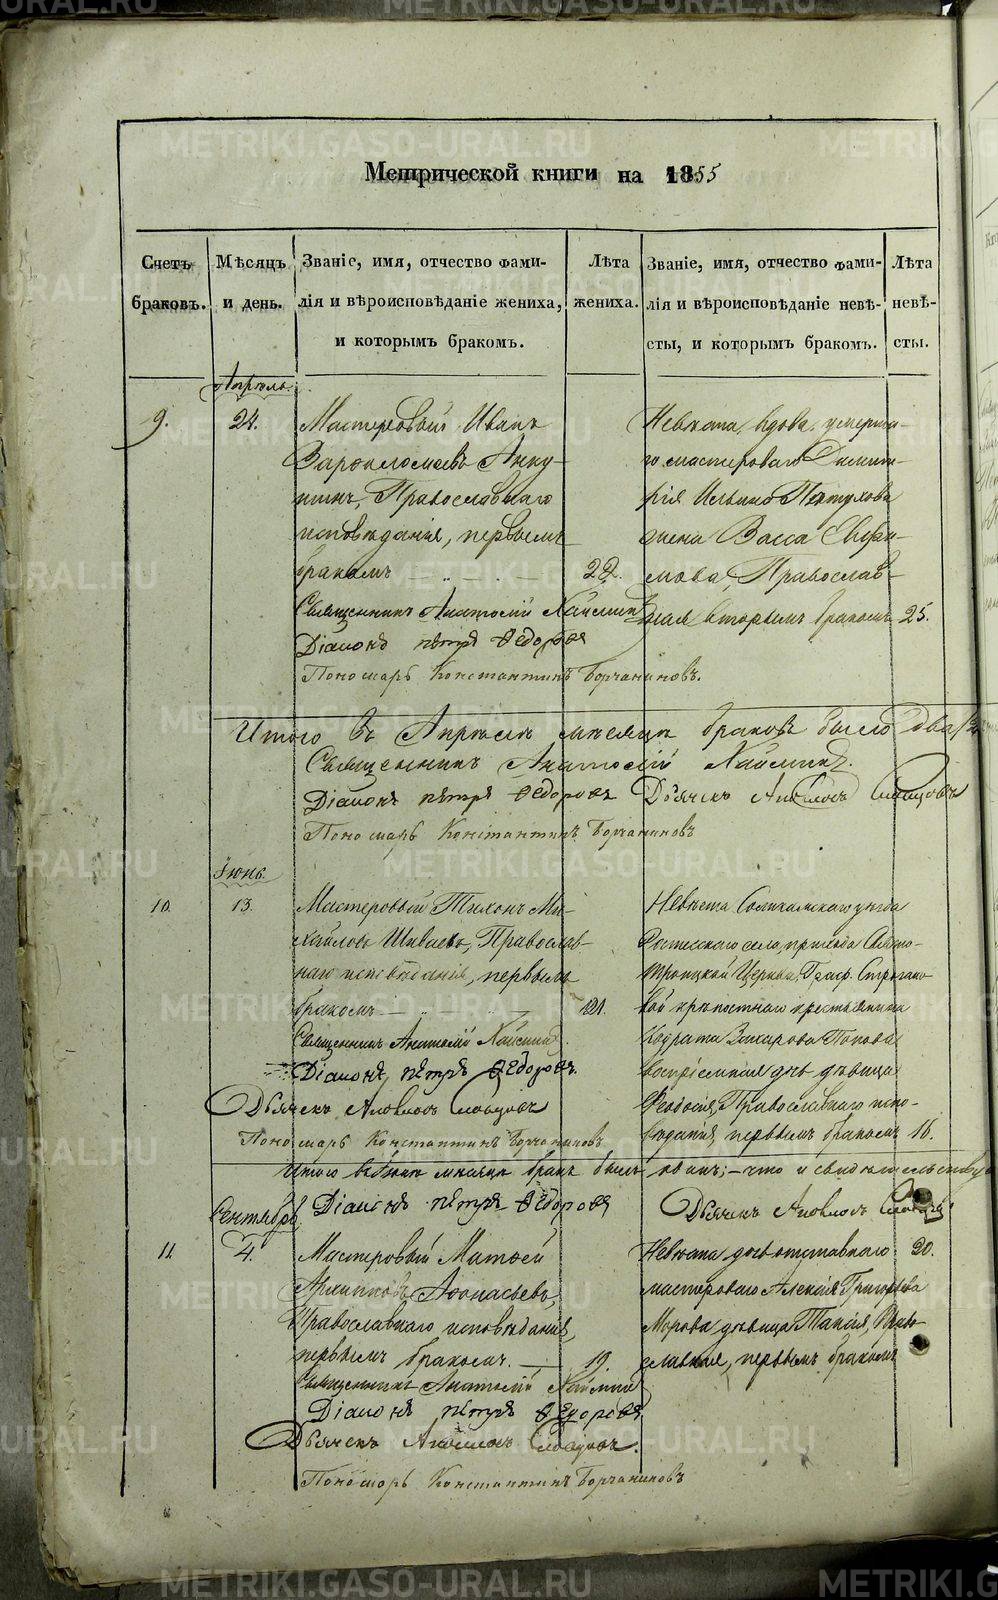 Метрической книги на 1855
Счетъ браковъ.
Мѣсяцъ и день.
Званіе, имя, отчество фами-
лія и вѣроисповѣданіе жениха,
и которымъ бракомъ.
Лѣта жениха.
Званіе, имя, отчество фами-
лія и вѣроисповѣданіе невѣ-
сты, и которымъ бракомъ.
Лѣта невѣ-
сты.
Апрѣль.
9.
24.
Мастеровый Иванъ
Варѳоломѣевъ Анку-
шинъ, Православнаго
исповѣданія, первымъ
бракомъ
22.
Священникъ Анатолій
Діаконъ Петръ Ѳедоровъ
Пономарь Константинъ Борчаниновъ.
Невѣста, вдова, умерша-
го мастероваго Димит-
рія Ильина Пѣтухова
жена Васса
Православ-
ная вторымъ бракомъ
25.
Итого въ Апрѣлѣ мѣсяцѣ браковъ было два
Священникъ Анатолій
Діаконъ Петръ Ѳедоровъ Дьячекъ
Пономарь Константинъ Борчаниновъ
Іюнь.
10.
13.
Мастеровый Тихонъ Ми-
хайловъ Православ-
наго исповѣданія, первымъ
бракомъ
21.
Священникъ Анатолій
Діаконъ, Петръ Ѳедоровъ.
Дьячекъ
Пономарь Константинъ Борчаниновъ
Невѣста Соликамскаго уѣзда
села, прихода Свято-
Троицкой Церкви, Граф. Строгано-
вой крѣпостнаго крестьянина
Кодрата Захарова Попова
дѣвица
Ѳеодосія, Православнаго испо-
вѣданія, первымъ бракомъ
16.
Итого въ Іюнѣ мѣсяцѣ бракъ былъ одинъ; – что и свидѣтельствуемъ
Діаконъ Петръ Ѳедоровъ
Дьячекъ
Сентябрь
11.
4.
Мастеровый Матѳей
Архиповъ Аѳонасьевъ,
Православнаго исповѣданія,
первымъ бракомъ.
19.
Священникъ Анатолій
Діаконъ Петръ Ѳедоровъ
Дьячекъ
Пономарь Константинъ Борчаниновъ
Невѣста дочь отставнаго
мастероваго Алексія Григорьева
дѣвица Таисія, Право-
славная, первымъ бракомъ
20.
METRIKI.GASO-URAL.RU